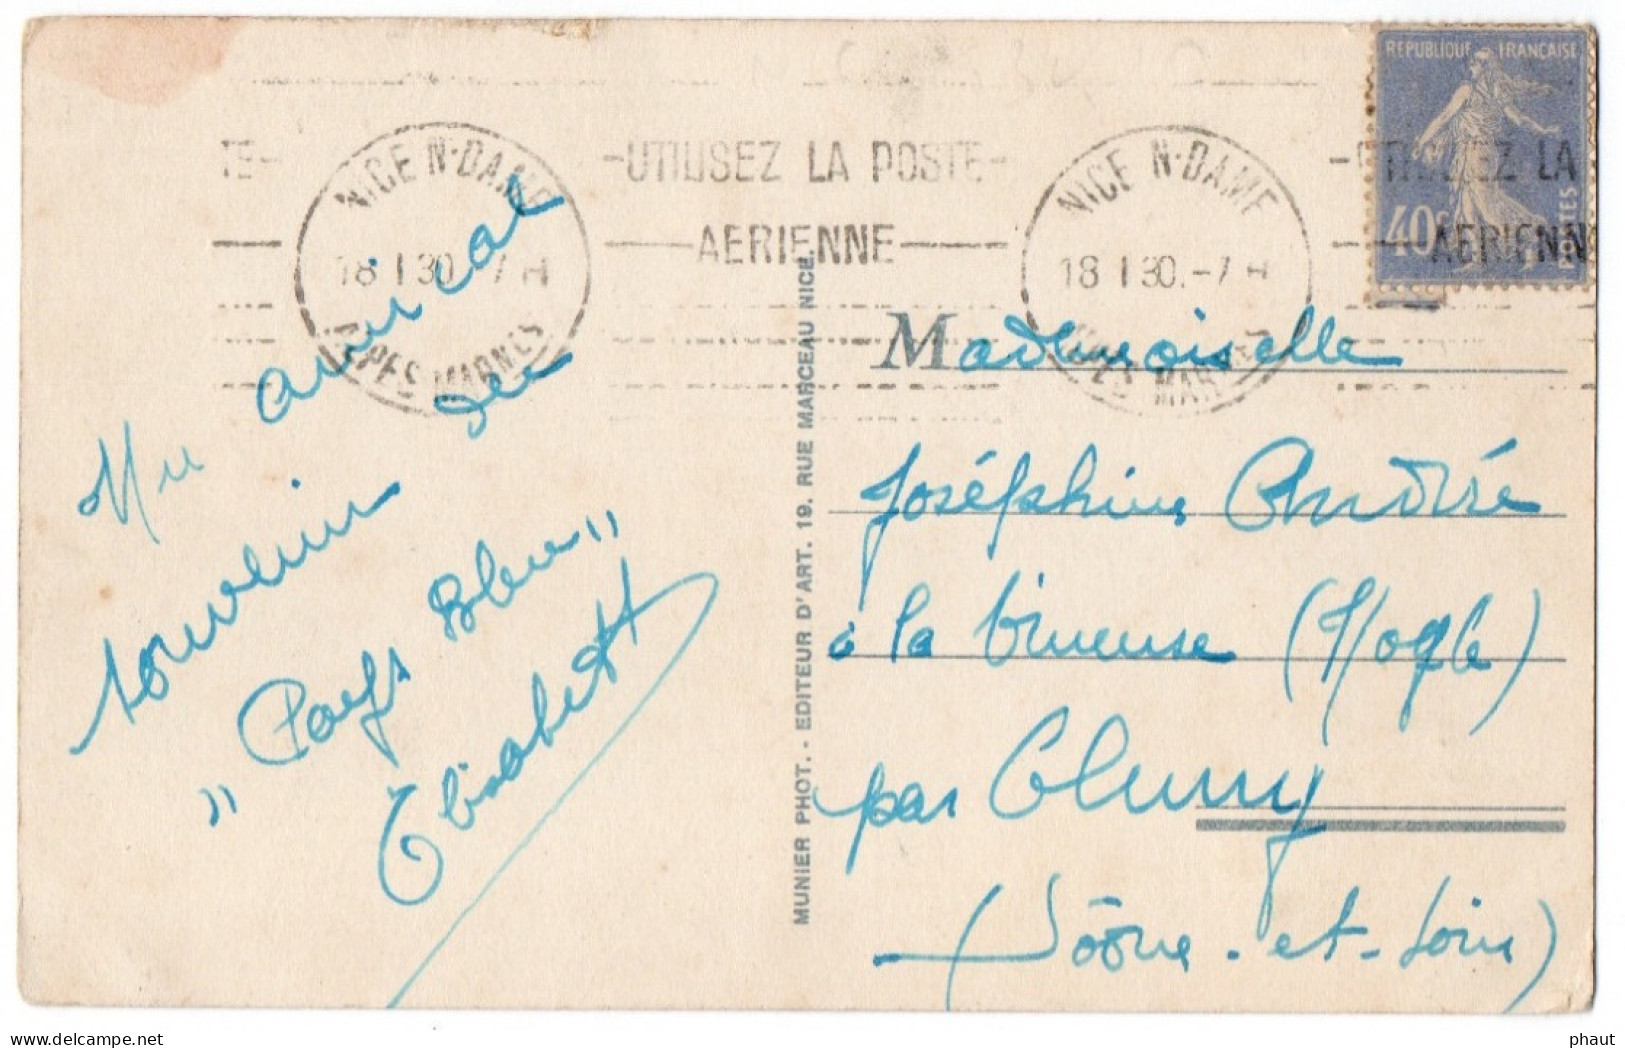 REPUBLIQUE FRANÇAISE
40c POSTES
TE-
NICE N-DAME
18 I 30 -7 H
ALPES MARMES
-UTILISEZ LA POSTE-
AERIENNE
NICE N-DAME
18 I 30.-7 H
ALPES MARMES
-UTILISEZ LA
AERIENN
Un amical
souvenir du
"Pays Bleu"
Elisabeth
MUNIER PHOT. - EDITEUR D'ART. 19. RUE MARCEAU NICE.
Mademoiselle
Joséphine André
à la Vineuse
par Cluny
(Saône-et-Loire)
phaut